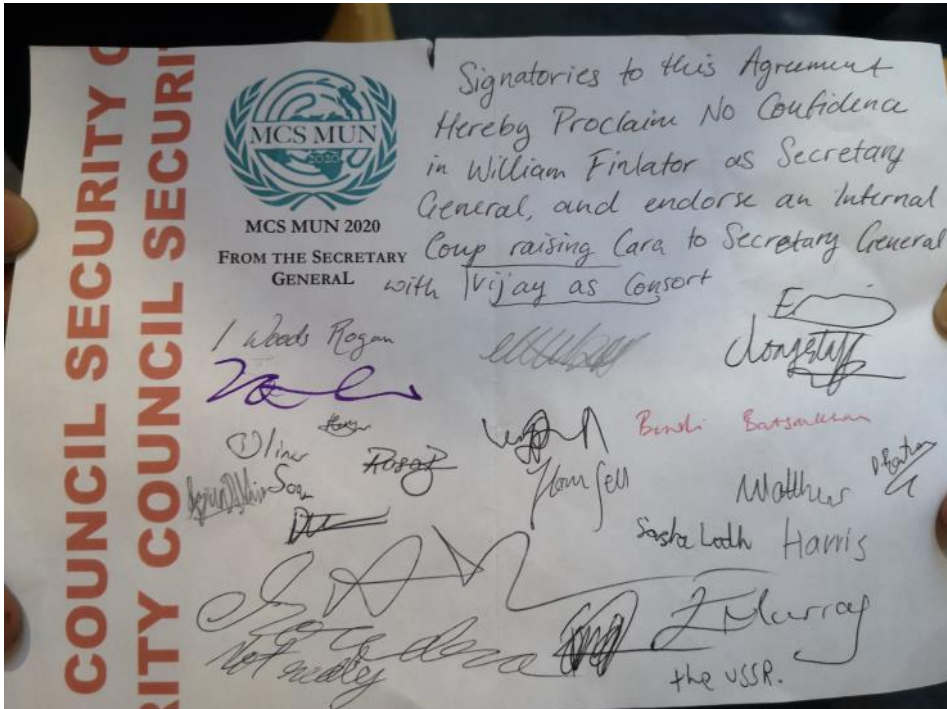 COUNCIL SECURITY C
RITY COUNCIL SECURI
MCS MUN
2020
MCS MUN 2020
FROM THE SECRETARY
GENERAL
Signatories to this Agreement
Hereby Proclaim No Confidence
in William Finlator as Secretary
General, and endorse an Internal
Coup raising Cara to Secretary General
with Vijay as Consort
I Woods Rogan
Longstaff
Oliner
RosaP
Matthew
Sasha Lodh Harris
Not
Z Murray
the USSR.